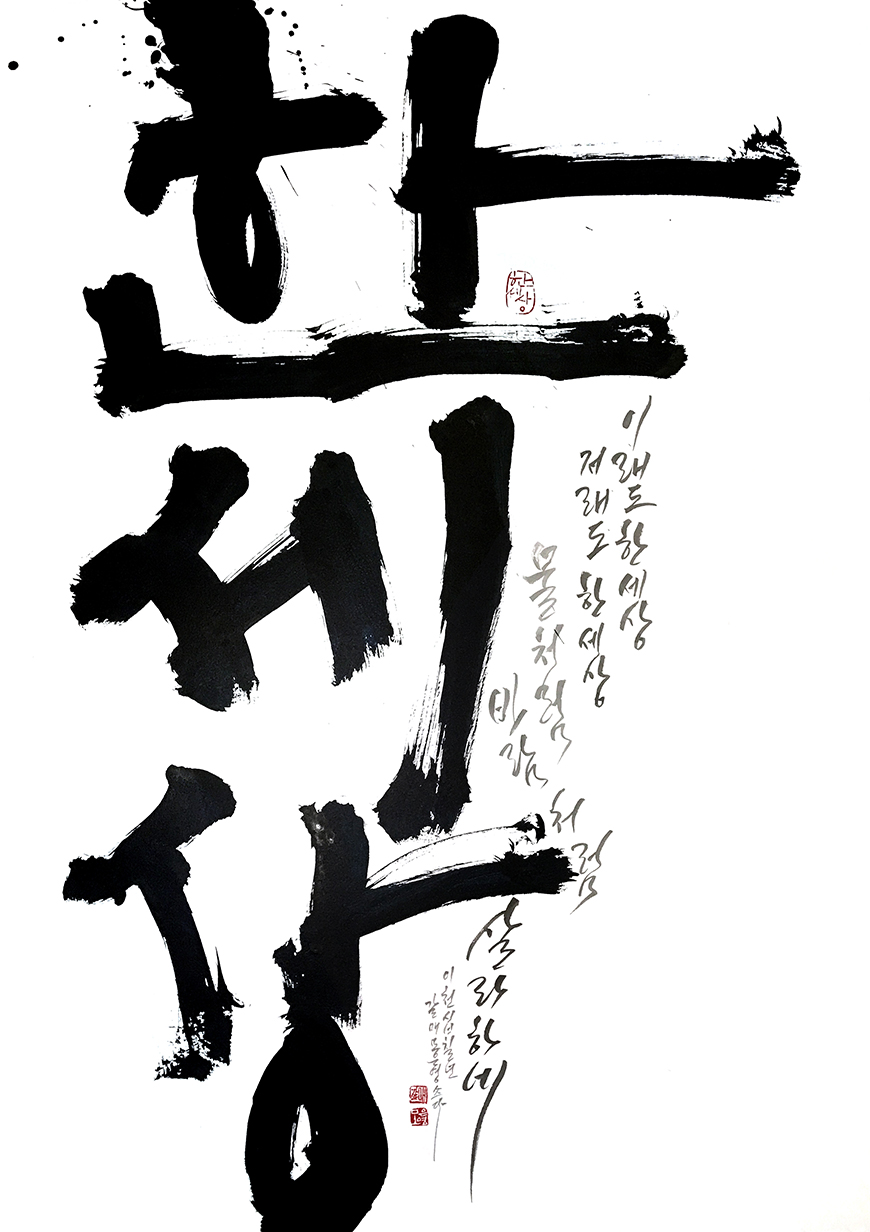 한
세
상
한세상
이래도 한세상
저래도 한세상
물처럼
바람처럼
살라하네
이천십칠년
쓰다